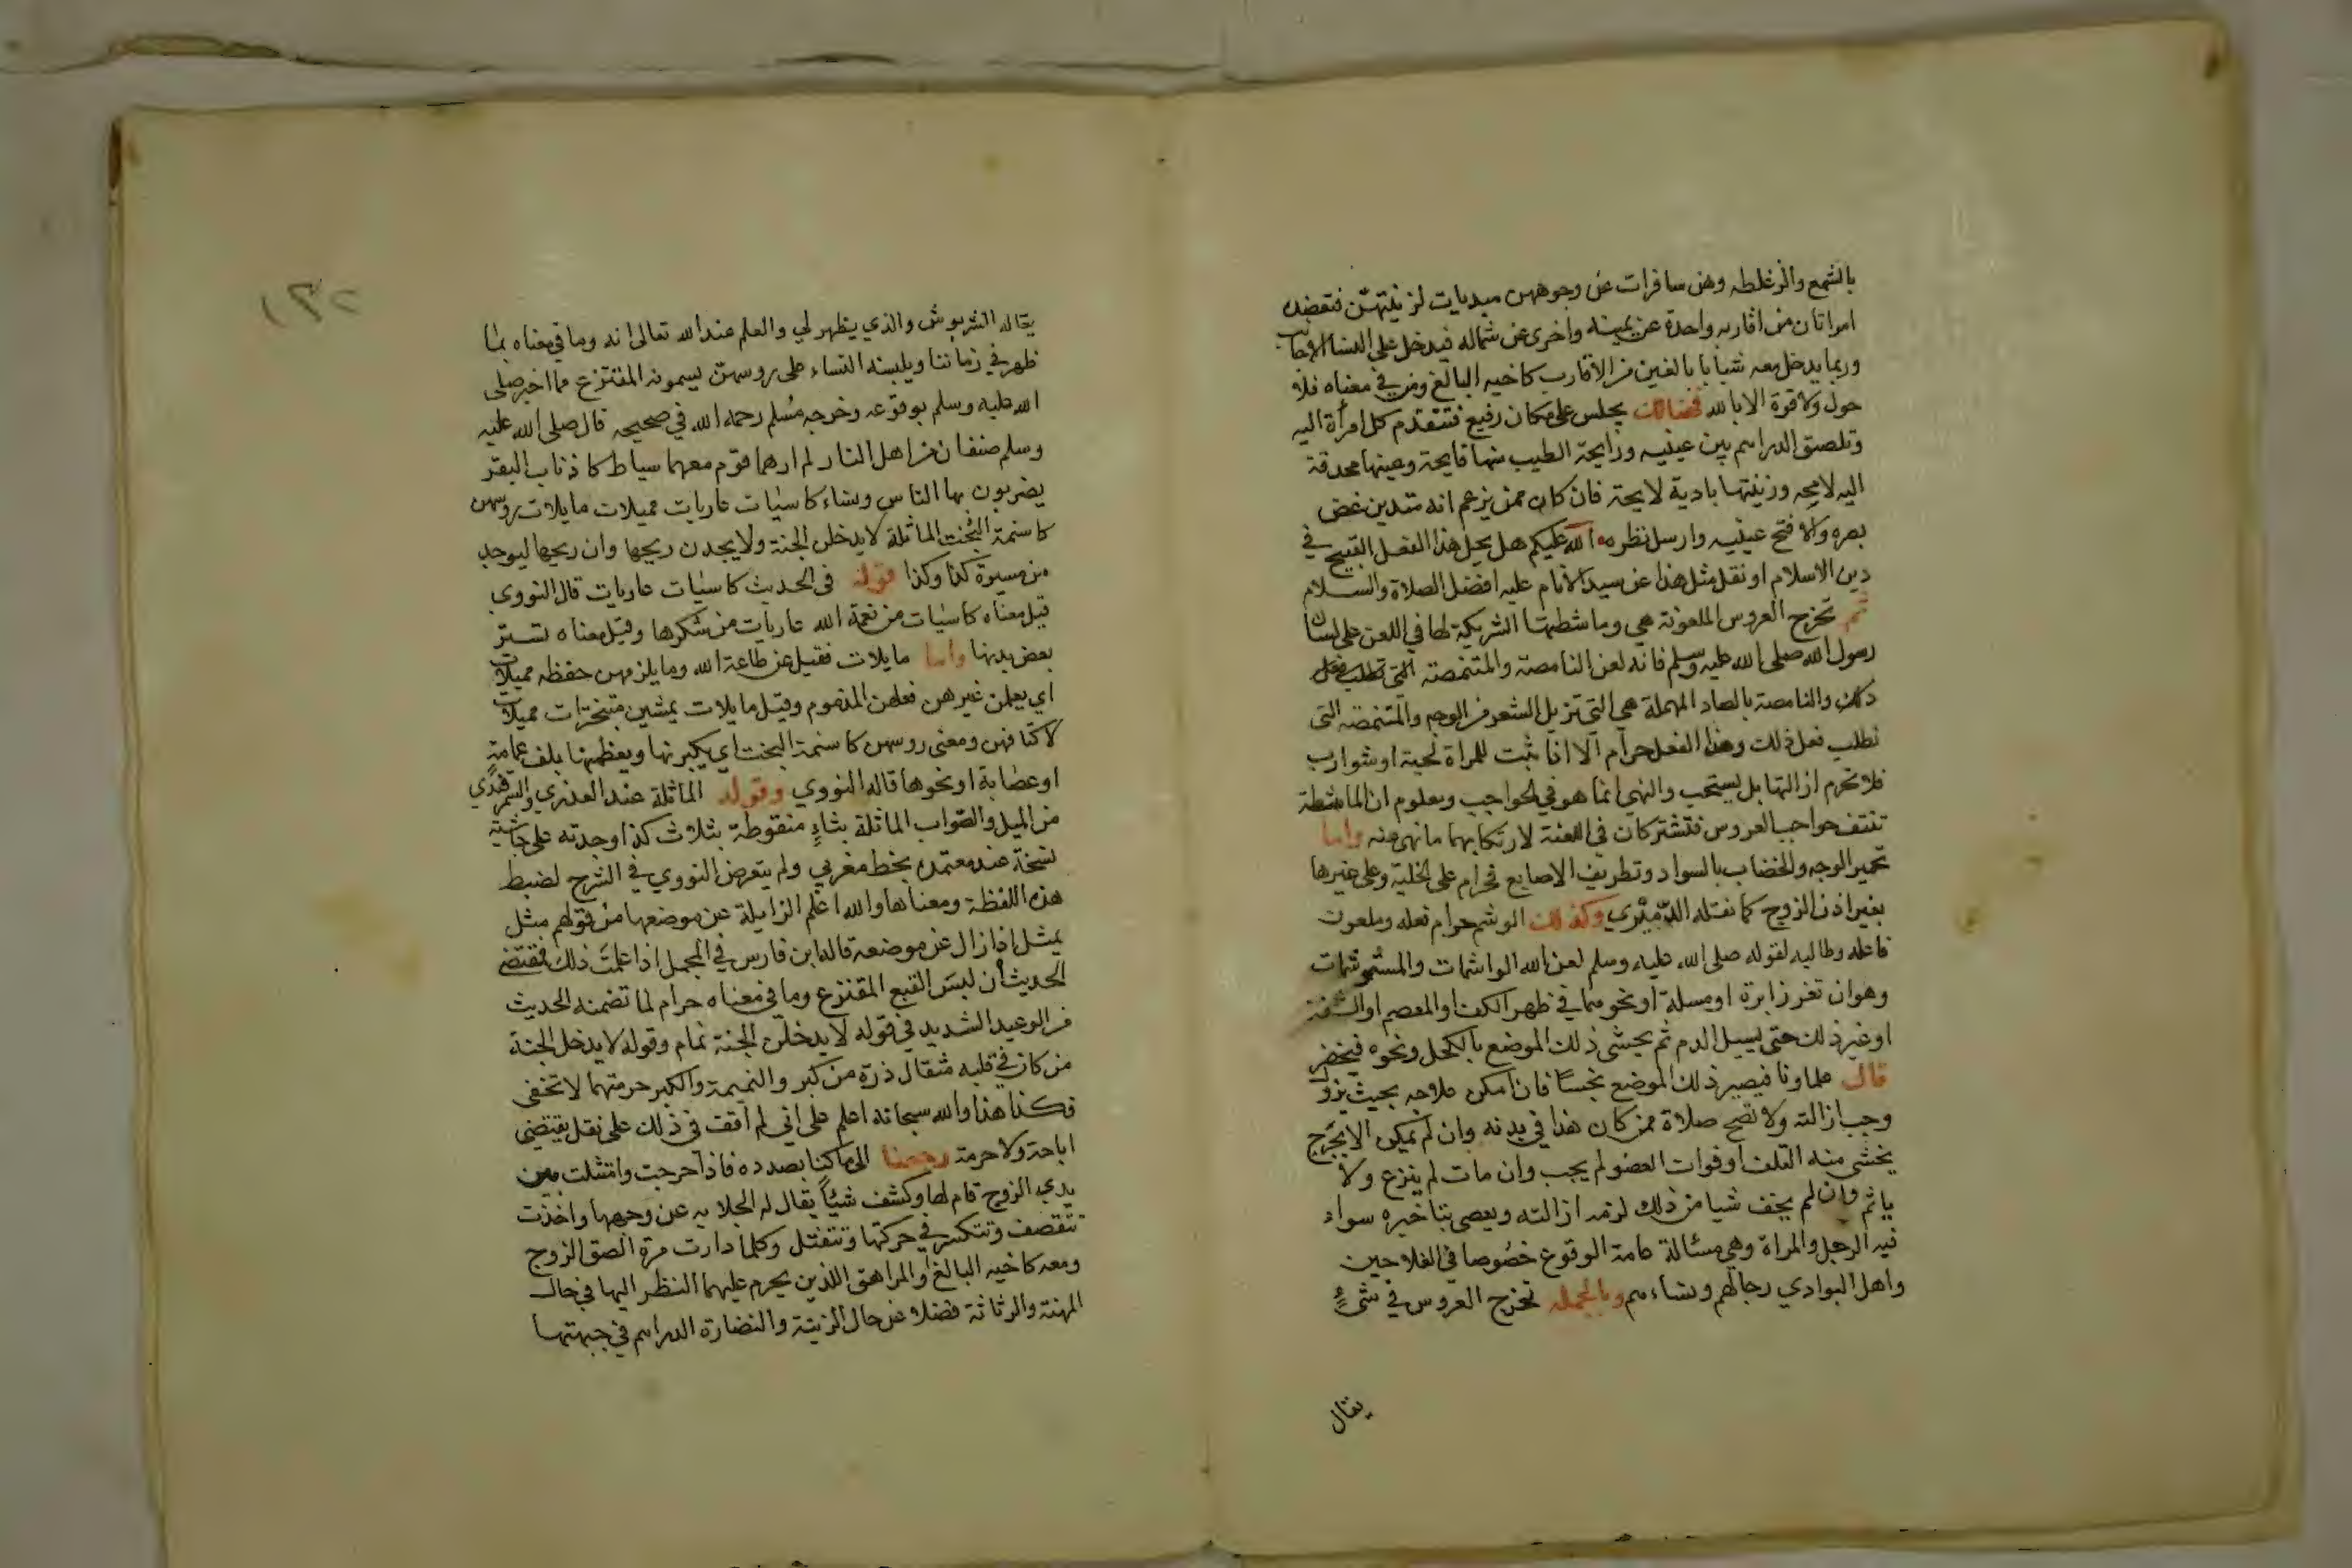 بالشمع والزغلطه وهن سافرات عن وجوههن مبديات لزينتهن فتعضده
امراتان من اقاربه واحدة عن يمينه واخرى عن شماله فيدخل على النساء الاجانب
وربما يدخل معه شبابا بالغين من الاقارب كاخيه البالغ ومن في معناه فلا
حول ولا قوة الا بالله فضالك يجلس على مكان رفيع فتتقدم كل امرأة اليه
وتلصق الدراهم بين عينيه ورايحة الطيب منها فايحة وعينها محدقة
اليه لامحه وزينتها بادية لايحة فان كان ممن يزعم انه متدين غض
بصره والا فتح عينيه وارسل نظره آلله عليكم هل يحل هذا الفعل القبيح في
دين الاسلام او نقل مثل هذا عن سيد الانام عليه افضل الصلاة والسلام
ثم تخرج العروس الملعونة هي وماشطتها الشريكة لها في اللعن على لسان
رسول الله صلى الله عليه وسلم فانه لعن النامصة والمتنمصة التي تطلب فعل
ذلك والنامصة بالصاد المهملة هي التي تزيل الشعر من الوجه والمتنمصة التي
تطلب فعل ذلك وهذا الفعل حرام الا اذا نبتت للمراة لحية او شوارب
فلا تحرم ازالتها بل يستحب والنهي انما هو في الحواجب ومعلوم ان الماشطة
تنتف حواجب العروس فتشتركان في اللعنة لارتكابهما ما نهى عنه واما
تحمير الوجه والخضاب بالسواد وتطريف الاصابع فحرام على الخلية وعلى غيرها
بغير اذن الزوج كما نقله الدميري وكذلك الوشم حرام فعله وملعون
فاعله وطالبه لقوله صلى الله عليه وسلم لعن الله الواشمات والمستوشمات
وهو ان تغرز ابرة او مسلة او نحوهما في ظهر الكف او المعصم او الشفة
او غير ذلك حتى يسيل الدم ثم يحشى ذلك الموضع بالكحل ونحوه فيخضر
قال علماونا فيصير ذلك الموضع نجسا فان امكن علاجه بحيث يزول
وجب ازالته ولا تصح صلاة من كان هذا في بدنه وان لم يمكن الا بجرح
يخشى منه التلف او فوات العضو لم يجب وان مات لم ينزع ولا
ياثم وان لم يخف شيا من ذلك لزمه ازالته ويعصى بتاخيره سواء
فيه الرجل والمراة وهي مسئالة عامة الوقوع خصوصا في الفلاحين
واهل البوادي رجالهم ونساءهم وبالجملة تخرج العروس في شيء
يقال
١٣٢
يقاله الشربوش والذي يظهر لي والعلم عند الله تعالى انه وما في معناه بما
ظهر في زماننا ويلبسنه النساء على روسهن يسمونه المقنزع مما اخبر صلى
الله عليه وسلم بوقوعه وخرجه مسلم رحمه الله في صحيحه قال صلى الله عليه
وسلم صنفان من اهل النار لم ارهما قوم معهما سياط كاذناب البقر
يضربون بها الناس ونساء كاسيات عاريات مميلات مايلات روسهن
كاسنمة البخت الماثلة لا يدخلن الجنة ولا يجدن ريحها وان ريحها ليوجد
من مسيرة كذا وكذا قوله في الحديث كاسيات عاريات قال النووي
قيل معناه كاسيات من نعمة الله عاريات من شكرها وقيل معناه تستر
بعض بدنها واما مايلات فقيل عن طاعة الله وما يلزمهن حفظه مميلات
اي يعلمن غيرهن فعلهن المذموم وقيل مايلات يمشين متبخترات مميلات
لاكتافهن ومعنى روسهن كاسنمة البخت اي يكبرنها ويعظمنها بلف عمامة
او عصابة او نحوها قاله النووي وقوله الماثلة عند العذري والسمرقندي
من الميل والصواب الماثلة بثاء منقوطة بثلاث كذا وجدته على حاشية
نسخة عند معتمده بخط مغربي ولم يتعرض النووي في الشرح لضبط
هذه اللفظة ومعناها والله اعلم الزايلة عن موضعها من قولهم مثل
يمثل اذا زال عن موضعه قاله ابن فارس في المجمل اذا علمت ذلك فمقتضى
الحديث أن لبس القبع المقنزع وما في معناه حرام لما تضمنه الحديث
من الوعيد الشديد في قوله لا يدخلن الجنة نمام وقوله لا يدخل الجنة
من كان في قلبه مثقال ذرة من كبر والنميمة والكبر حرمتهما لا تخفى
فكذا هذا والله سبحانه اعلم على اني لم اقف في ذلك على نقل يقتضي
اباحة ولا حرمة رجعنا الى ما كنا بصدده فاذا خرجت وامتثلت بين
يدي الزوج قام لها وكشف شيئا يقال له الجلايه عن وجهها واخذت
تتقصف وتتكسر في حركتها وتتفتل وكلما دارت مرة الصق الزوج
ومعه كاخيه البالغ او المراهق اللذين يحرم عليهما النظر اليها في حال
المهنة والرثاثة فضلا عن حال الزينة والنضارة الدراهم في جبهتها